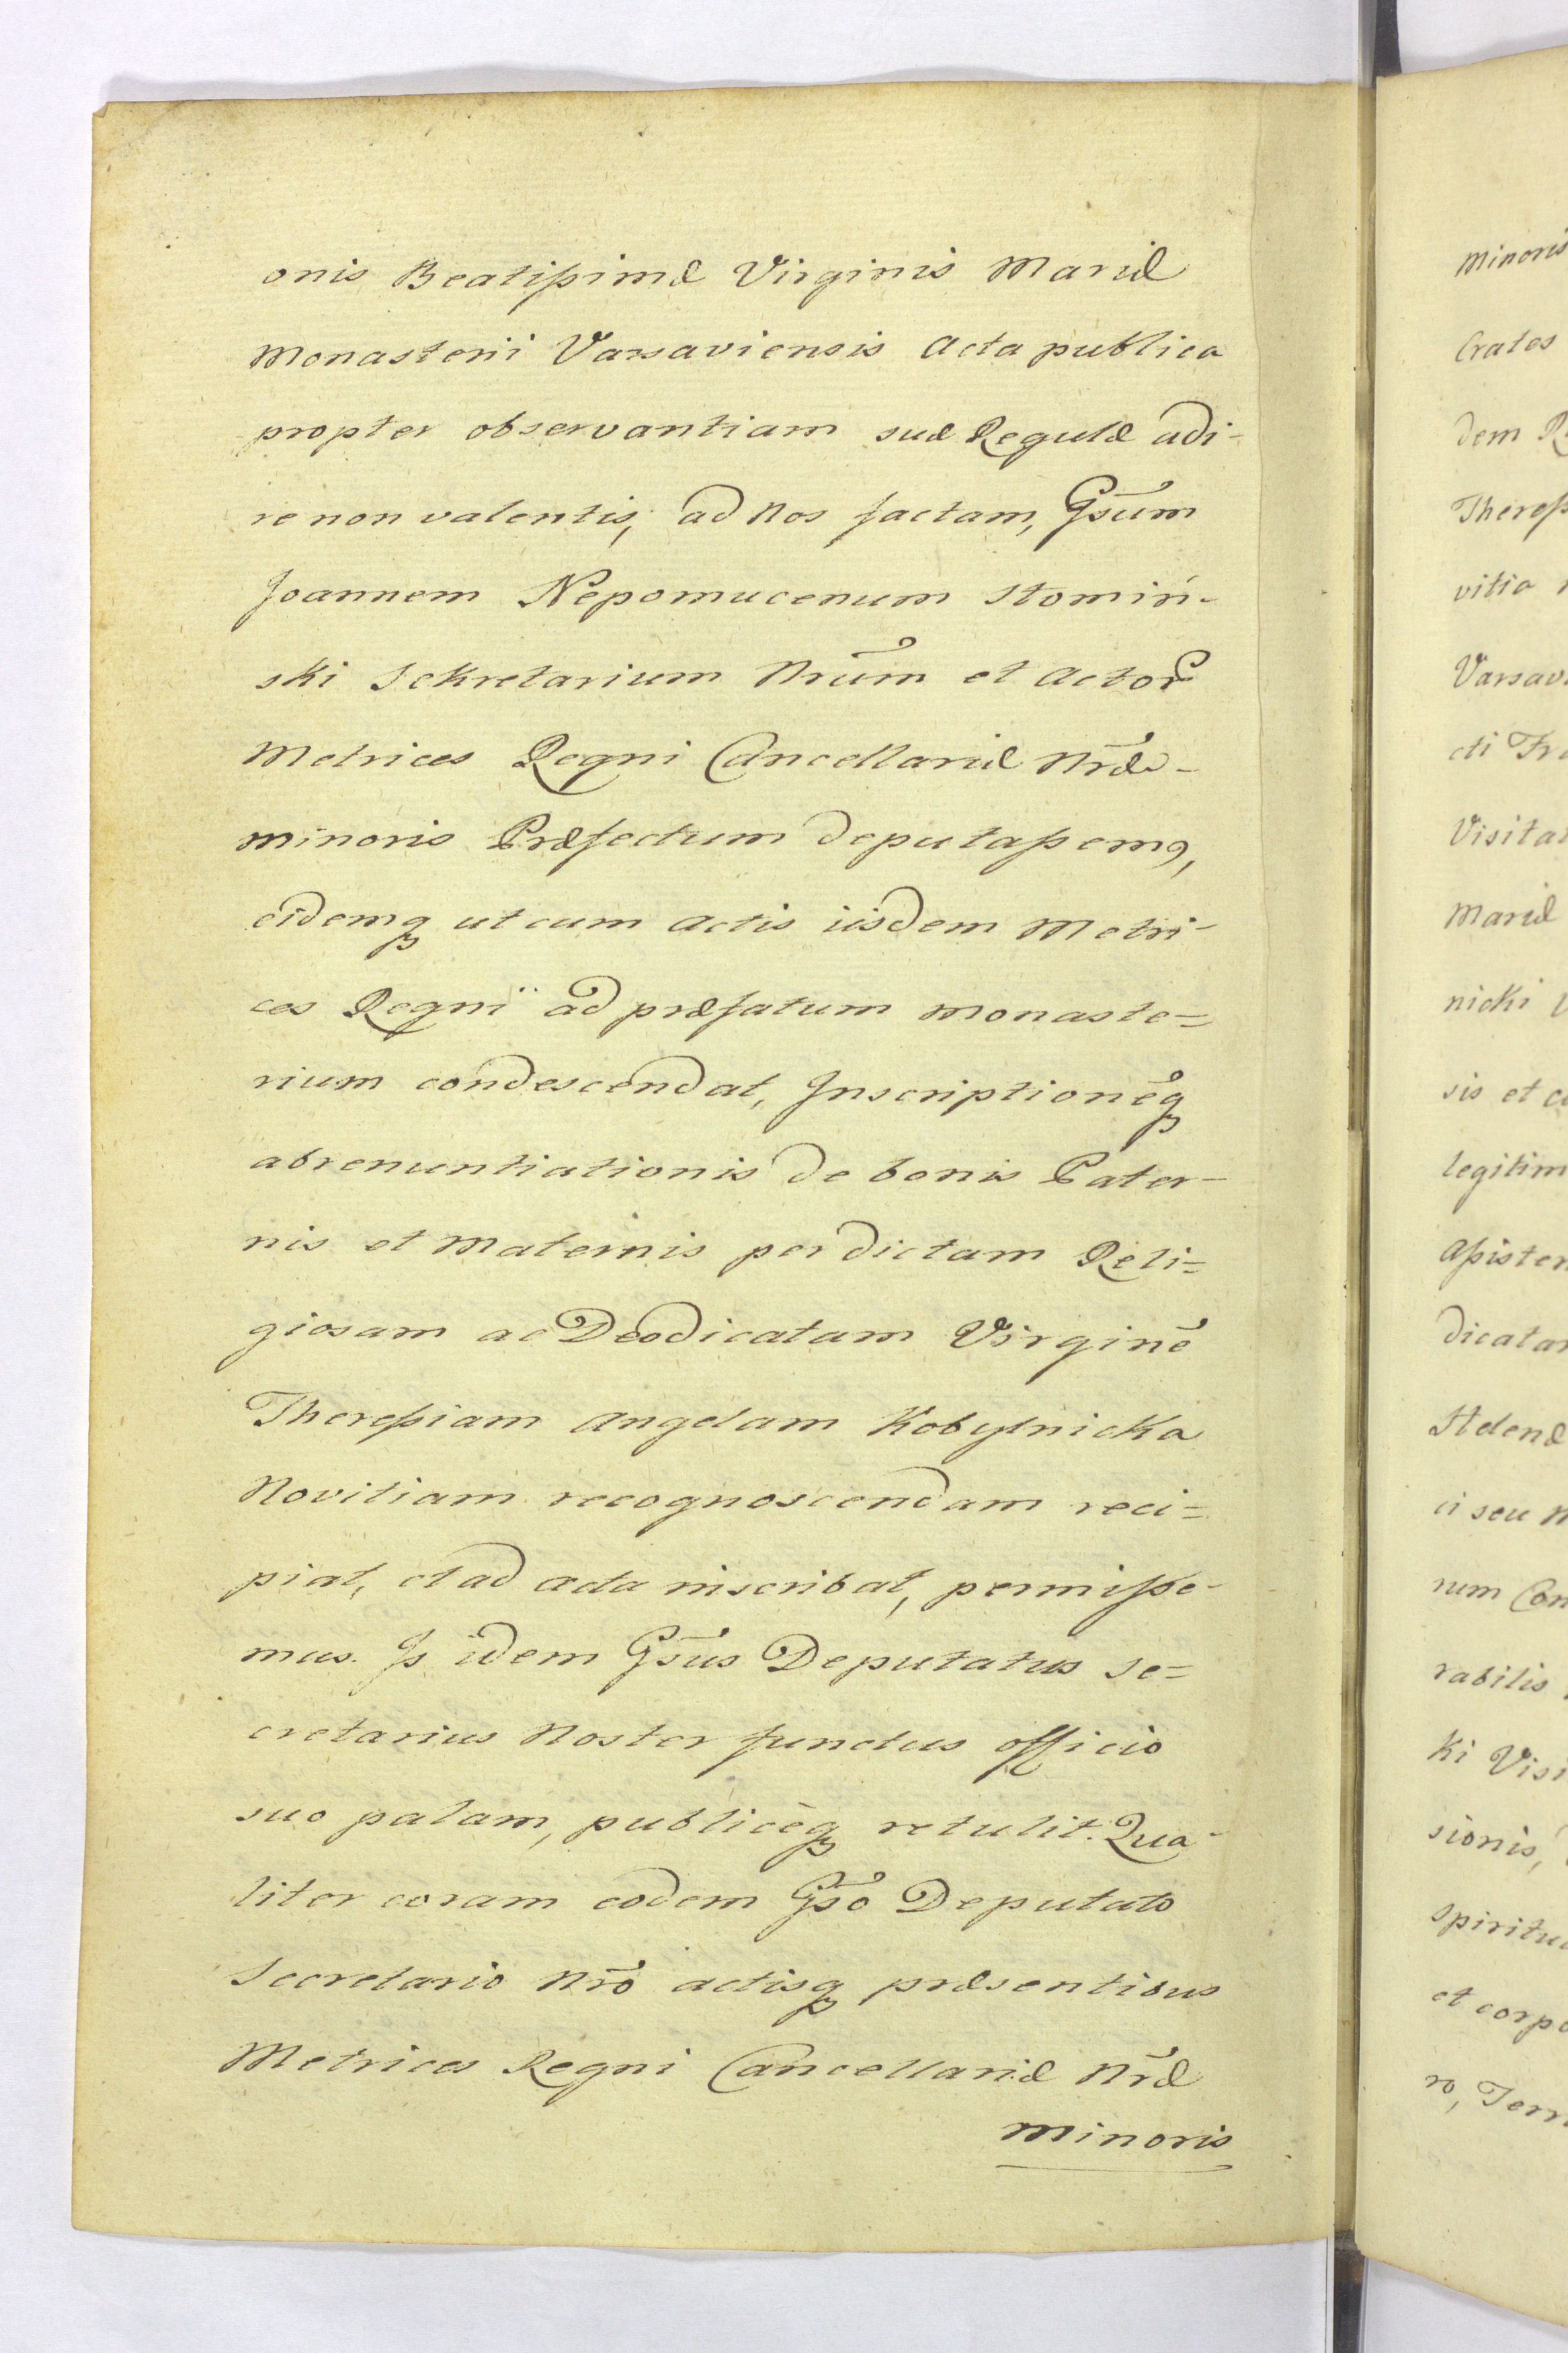 onis Beatissimæ Virginis Mariæ
Monasterii Varsaviensis Acta publica
propter observantiam suæ Regulæ adi-
re non valentis, ad Nos factam, Gsūm
Joannem Nepomucenum Słomiń-
ski Sekretarium Nrūm et Actor
Metrices Regni Cancellariæ Nræ-
minoris Præfectum deputassemꝰ,
eidemq ut cum Actis iisdem Metri-
ces Regnii ad præfatum Monaste=
rium condescendat, Inscriptionēq
abrenuntiationis de bonis Pater-
nis et Maternis per dictam Reli=
giosam ac Deodicatam Virginē
Theressiam Angelam Kobylnicka
Novitiam recognoscendam reci=
piat, et ad acta inscribat, permisse-
mus. Is idem Gsūs Deputatus Se=
cretarius Noster functus officio
suo palam, publicèq retulit. Qua-
liter coram eodem Gsō Deputato
Secretario Nrō actisq præsentibus
Metrices Regni Cancellariæ Nræ
minoris
minoris
Crates
dem
Theress
vitia
Varsavi
cti
Visitat
Mariæ
nicki
sis et
legitim
Assisten
dicatam
Helenæ
ci seu
rum Con
rabilis
ki Visi
sionis,
spiritu
et corpo
ro, Terr